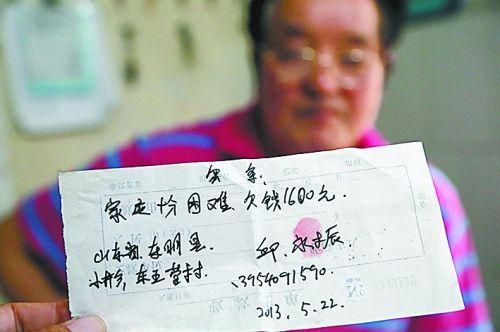 欠条.
家庭十分困难,欠钱1600元.
山东省,东明县.
小井乡,东五营村.
邱
13954091590.
2013.5.22.